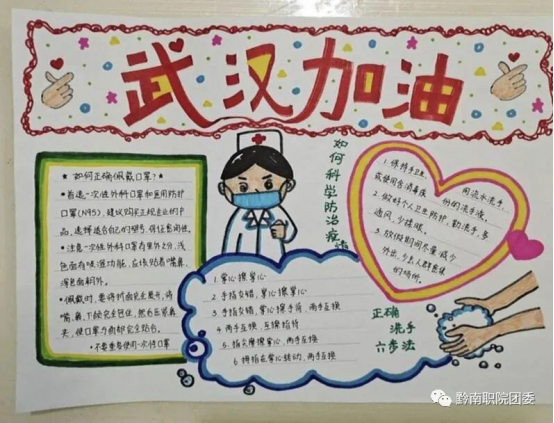 武汉加油
★如何正确佩戴口罩?★
•首选一次性外科口罩和医用防护
口罩(N95),建议购买正规企业的产
品,选择适合自己的型号,保证密闭性。
•注意一次性外科口罩有里外之分,浅
色面有吸湿功能,应该贴着嘴鼻,
深色面朝外。
•佩戴时,要将折面完全展开,将
嘴、鼻、下颌完全包住,然后压紧鼻
夹,使口罩与面部完全贴合。
•不要重复使用一次性口罩
如何科学防治疫情
1.保持手卫生,
用流水洗手
或使用含消毒成
份的洗手液。
2.做好个人卫生防护,勤洗手,多
通风,少揉眼。
3.放假期间尽量减少
外出,少去人群密集
的场所。
1.掌心擦掌心
2.手指交错,掌心擦掌心
3.手指交错,掌心擦手背,两手互换
4.两手互握,互擦指背
5.指尖摩擦掌心,两手互换
6.拇指在掌心转动,两手互换
正确
洗手
六步法
黔南职院团委